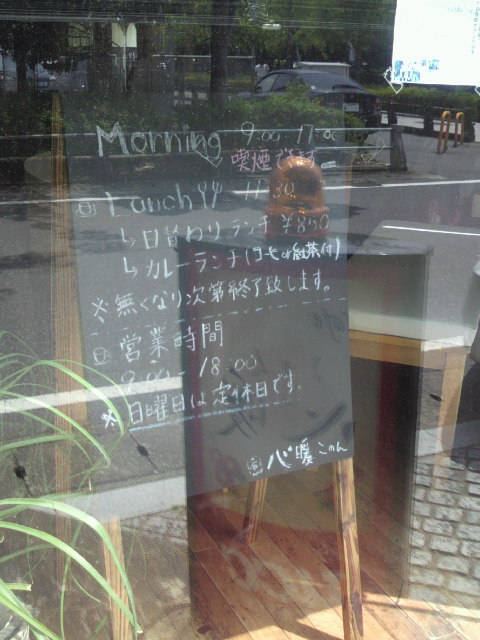 Morning 9:00 11:00
喫煙できます
Lunch 11:30
↳日替わりランチ ¥850
↳カレーランチ(コーヒor紅茶付)
※無くなり次第終了致します。
営業時間
9:00-18:00
※日曜日は定休日です。
心暖 このん